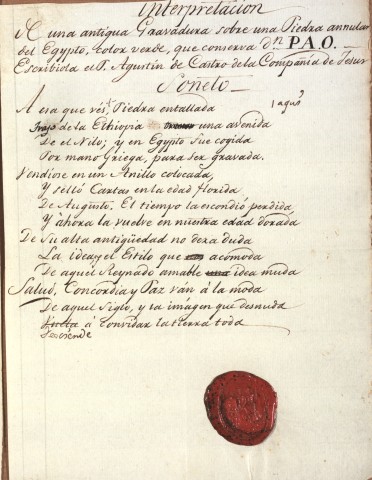 Interpretacion
A una antigua Gravadura sobre una Piedra annular
del Egypto, color verde, que conserva Dn. P.A.O.
Escribiola el P. Agustin de Castro de la Compañia de Jesus
Soneto
Piedra entallada
de la Ethiopia una avenida
De el Nilo; y en Egypto fue cogida
Por mano Griega, para ser gravada.
Vendiose en un Anillo colocada,
Y selló Cartas en la edad florida
De Augusto. El tiempo la escondió perdida
Y ahora la vuelve en nuestra edad dorada
De su alta antigüedad no dexa duda
La idea, y el Estilo que acomoda
De aquel Reynado amable idea muda
Salud, Concordia y Paz ván á la moda
De aquel Siglo, y su imagen que desnuda
á convidar la tierra toda
Desciende